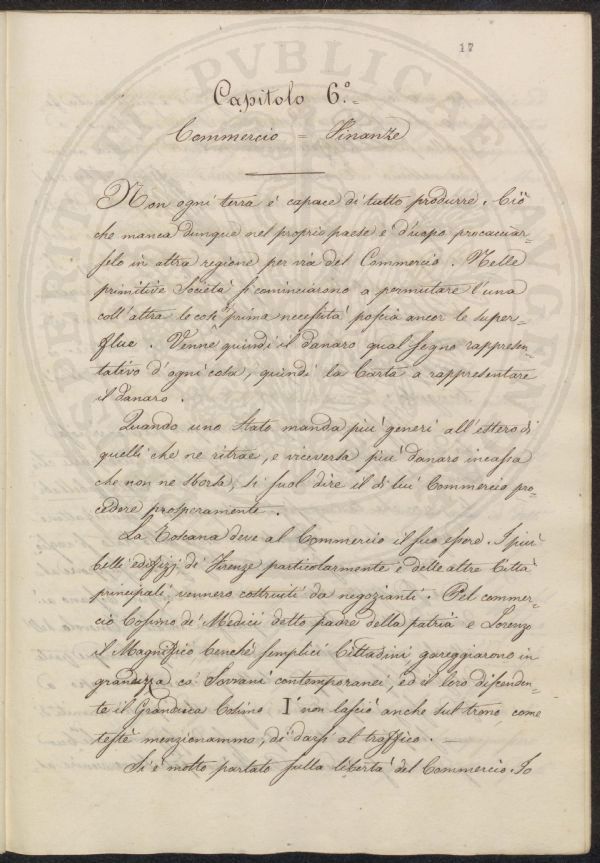 17
Capitolo 6.º =
Commercio = Finanze
Non ogni terra é capace di tutto produrre. Ciò
che manca dunque nel proprio paese é d'uopo procacciar-
selo in altra regione per via del Commercio. Nelle
primitive Società si cominciarono a permutare l'una
coll'altra le cose prima necessità poscia ancor le super-
flue. Venne quindi il danaro qual segno rappresen-
tativo d'ogni cosa, quindi la Carta a rappresentare
il danaro.
Quando uno Stato manda piu' generi all'estero di
quelli che ne ritrae, e viceversa piu' danaro incassa
che non ne sborsa, si suol dire il di lui Commercio pro-
cedere prosperamente.
La Toscana deve al Commercio il suo essere. I piu'
belli edifizj di Firenze particolarmente e delle altre Città
principali, vennero costruiti da negozianti. Pel commer-
cio Cosimo de' Medici detto padre della patria e Lorenzo
il Magnifico benché semplici Cittadini gareggiarono in
grandezza co' Sovrani contemporanei, ed il loro discenden-
te il Granduca Cosimo I° non lasciò anche sul trono, come
testé menzionammo, di darsi al traffico. —
Si é molto parlato sulla libertà del Commercio. Io